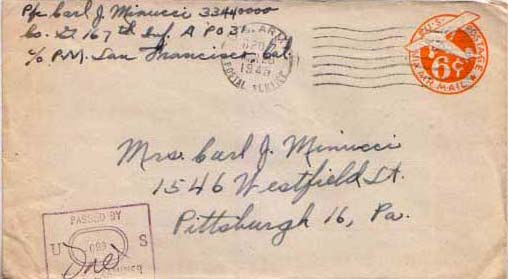 Pfc Carl J. Minucci 33440000
Co. 167th Inf. A PO 37
c/o P.M. San Francisco Cal.
U.S. ARMY
1945
POSTAL SERVICE
U.S. POSTAGE
6¢
AIR MAIL
Mrs. Carl J. Minucci
1546 Westfield St.
Pittsburgh 16, Pa.
PASSED BY
U S